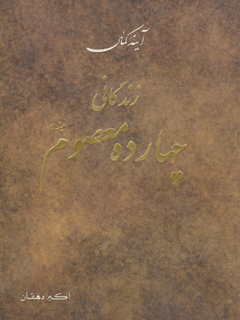 آینه کمال
زندگانی
چهارده معصوم
اکبر دهقان